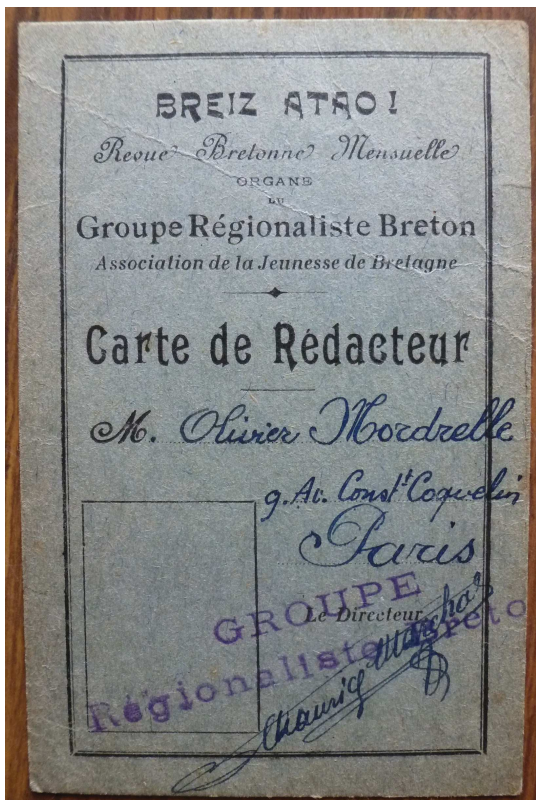 BREIZ ATAO!
Revue Bretonne Mensuelle
ORGANE
DU
Groupe Régionaliste Breton
Association de la Jeunesse de Bretagne
Carte de Rédacteur
M. Olivier Mordrelle
9. Av. Const^t Coquelin
Paris
GROUPE
Le Directeur
Régionaliste Breto
Maurice Marchal